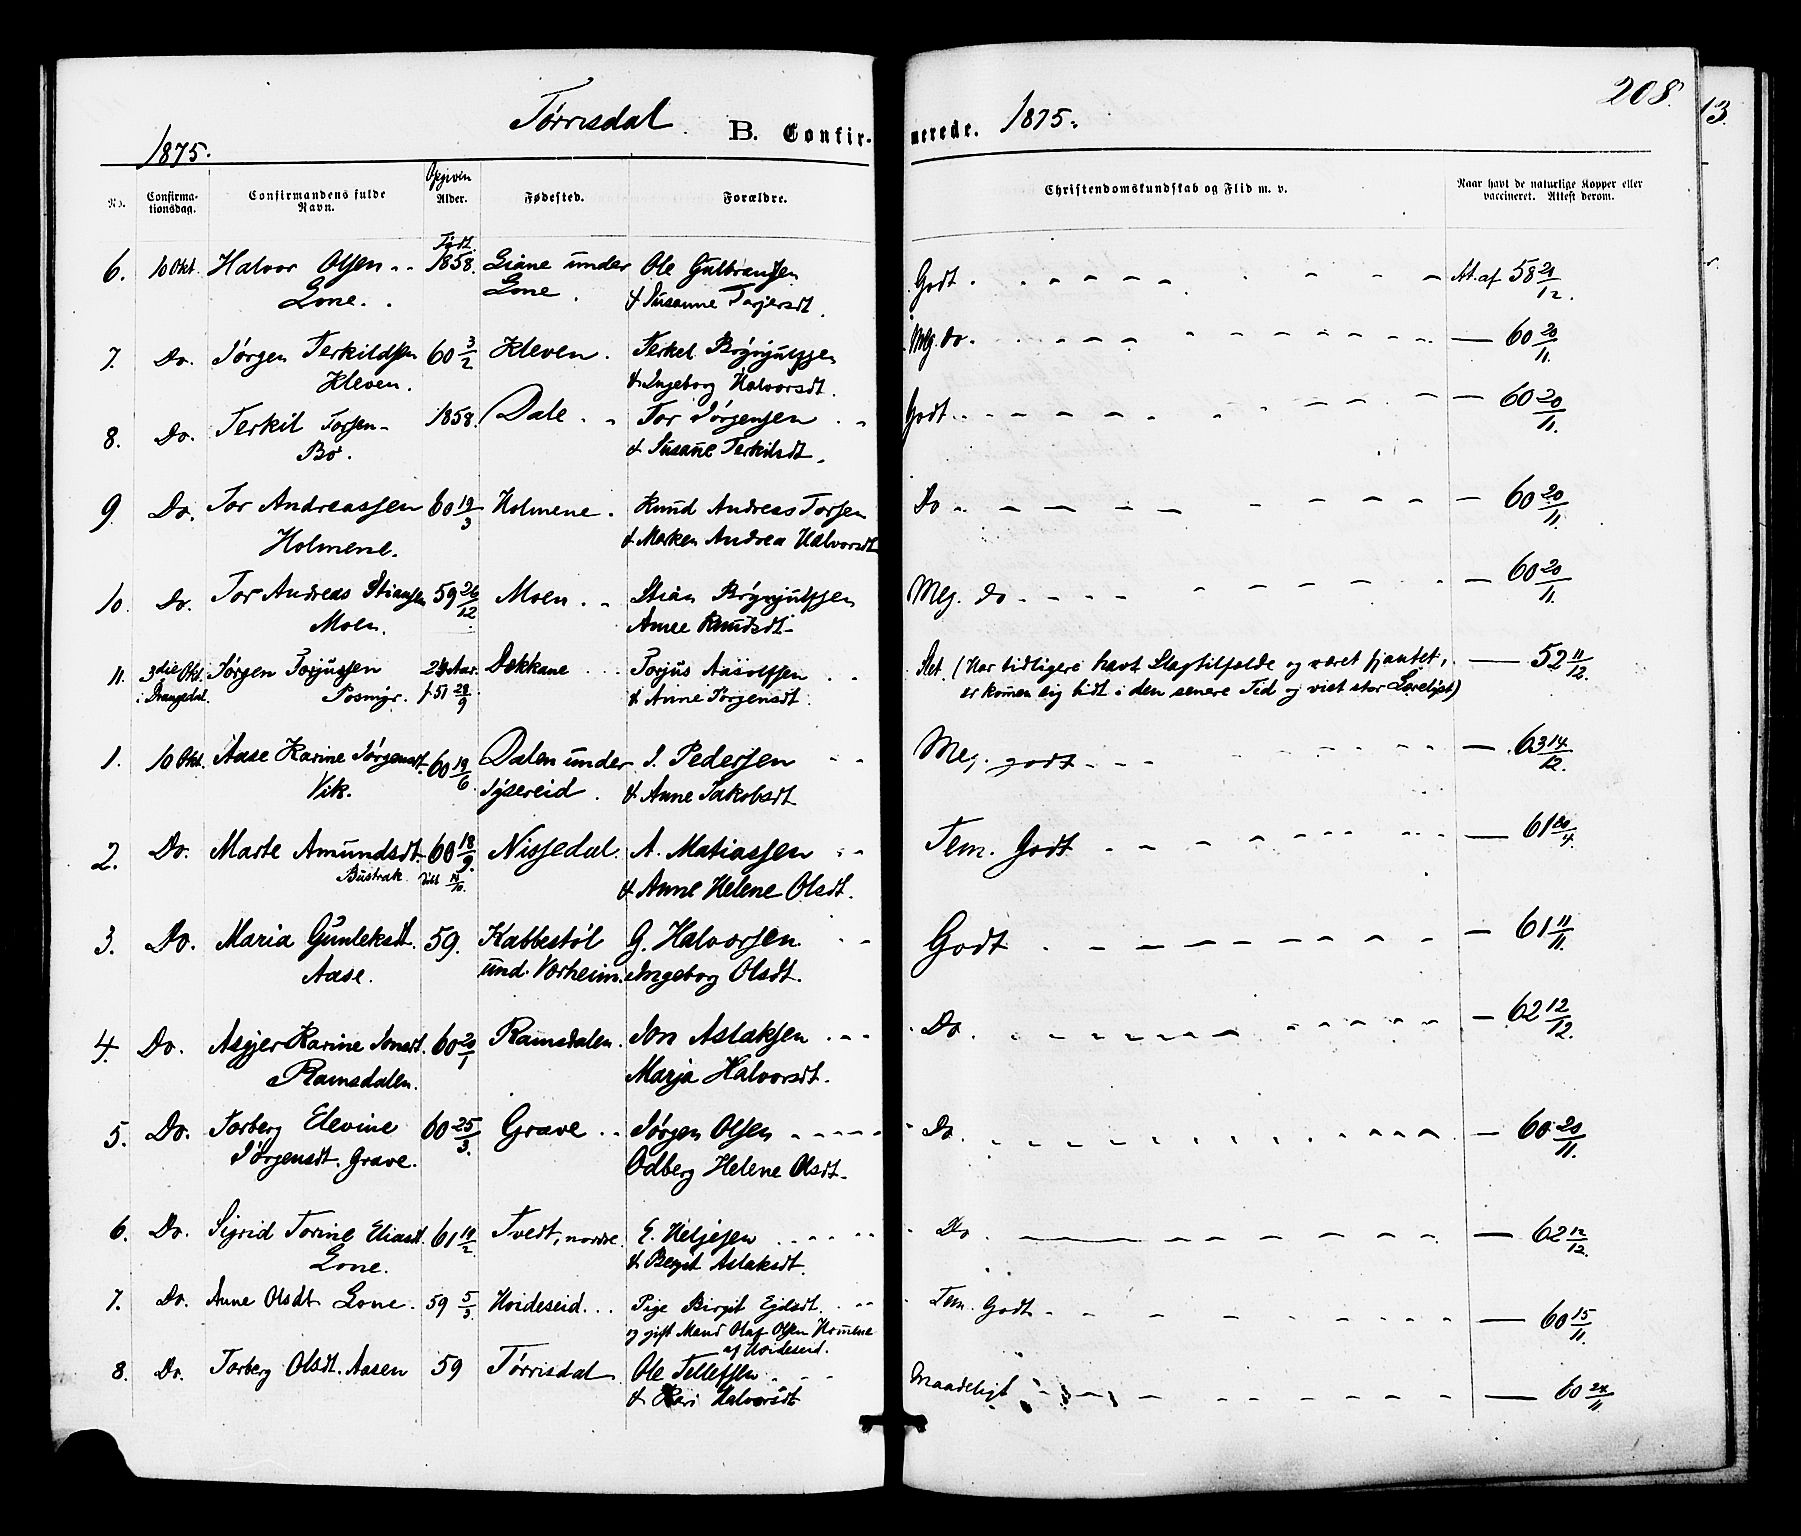 208.
Tørrisdal. B. Confir- merede. 1875.
1875.
No. Confirma- tionsdag. Confirmandens fulde Navn. Opgiven Alder. Fødested. Forældre. Christendomskundskab og Flid m. v. Naar havt de naturlige Kopper eller vaccineret. Attest derom.
6. 10 Okt. Halvor Olsen Født 1858. Liane under Ole Gulbransen Godt. At. af 58 21/12.
Lone. Lone. & Susanne Torjersdt.
7. Do. Jørgen Terkildsen 60 3/2 Kleven. Terkel Brynjulfsen Meg. do. — 60 20/11.
Kleven. & Ingeborg Halvorsdt.
8. Do. Terkil Torsen 1858. Dale Tor Jørgensen Godt. — 60 20/11.
Bø. & Susane Terkilsdt.
9. Do. Tor Andreassen 60 19/3 Holmene. Knud Andreas Torsen Do — 60 20/11.
Holmene. & Marken Andrea Halvorsdt
10. Do. Tor Andreas Stiansen 59 26/12 Moen Stian Brynjulfsen Meg. do — 60 20/11.
Moen. Anne Knudsdt
11. 3die Okt. Jørgen Torjussen 24 Aar. Dekkane Torjus Aasolfsen Slet. (Har tidligere havt Slagtilfælde og været fjantet, — 52 11/12.
i Drangedal. Posmyr. f. 51 29/9 & Anne Jørgensdt. er komen sig lidt i den senere Tid og vist stor Lærelyst)
1. 10 Okt. Aase Karine Jørgensdt. 60 19/6 Dalen under J. Pedersen Meg. godt — 63 14/12.
Vik. Sysereid. & Anne Jakobsdt
2. Do. Marte Amundsdt. 60 18/9. Nissedal. A. Matiassen Tem. Godt — 61 20/4.
Bustrak. & Anne Helene Olsdt.
3. Do. Maria Gunleksdt. 59. Kabbestøl G. Halvorsen. Godt — 61 11/11.
Aase. und. Vorheim. Ingeborg Olsdt.
4. Do. Asgjer Karine Jonsdt. 60 20/1 Ramsdalen. Jon Aslaksen Do — 62 12/12.
Ramsdalen. Marja Halvorsdt.
5. Do. Torberg Elevine 60 25/3. Grave Jørgen Olsen Do. — 60 20/11.
Jørgensdt. Grave. Odberg Helene Olsdt.
6. Do. Sigrid Torine Eliasdt. 61 19/2 Tvedt, nordre. E. Heljesen Do. — 62 12/12.
Lone. & Bergit Aslaksdt.
7. Do. Anne Olsdt. Lone. 59 5/3 Hvideseid Pige Birgit Ejelsdt. Tem. Godt — 60 15/11.
og gift Mand Olaf Olsen Homene
af Hvideseid.
8. Do. Torberg Olsdt. Aasen 59 Tørrisdal Ole Tellefsen Maadeligt — 60 24/11.
& Kari Halvorsdt
13.